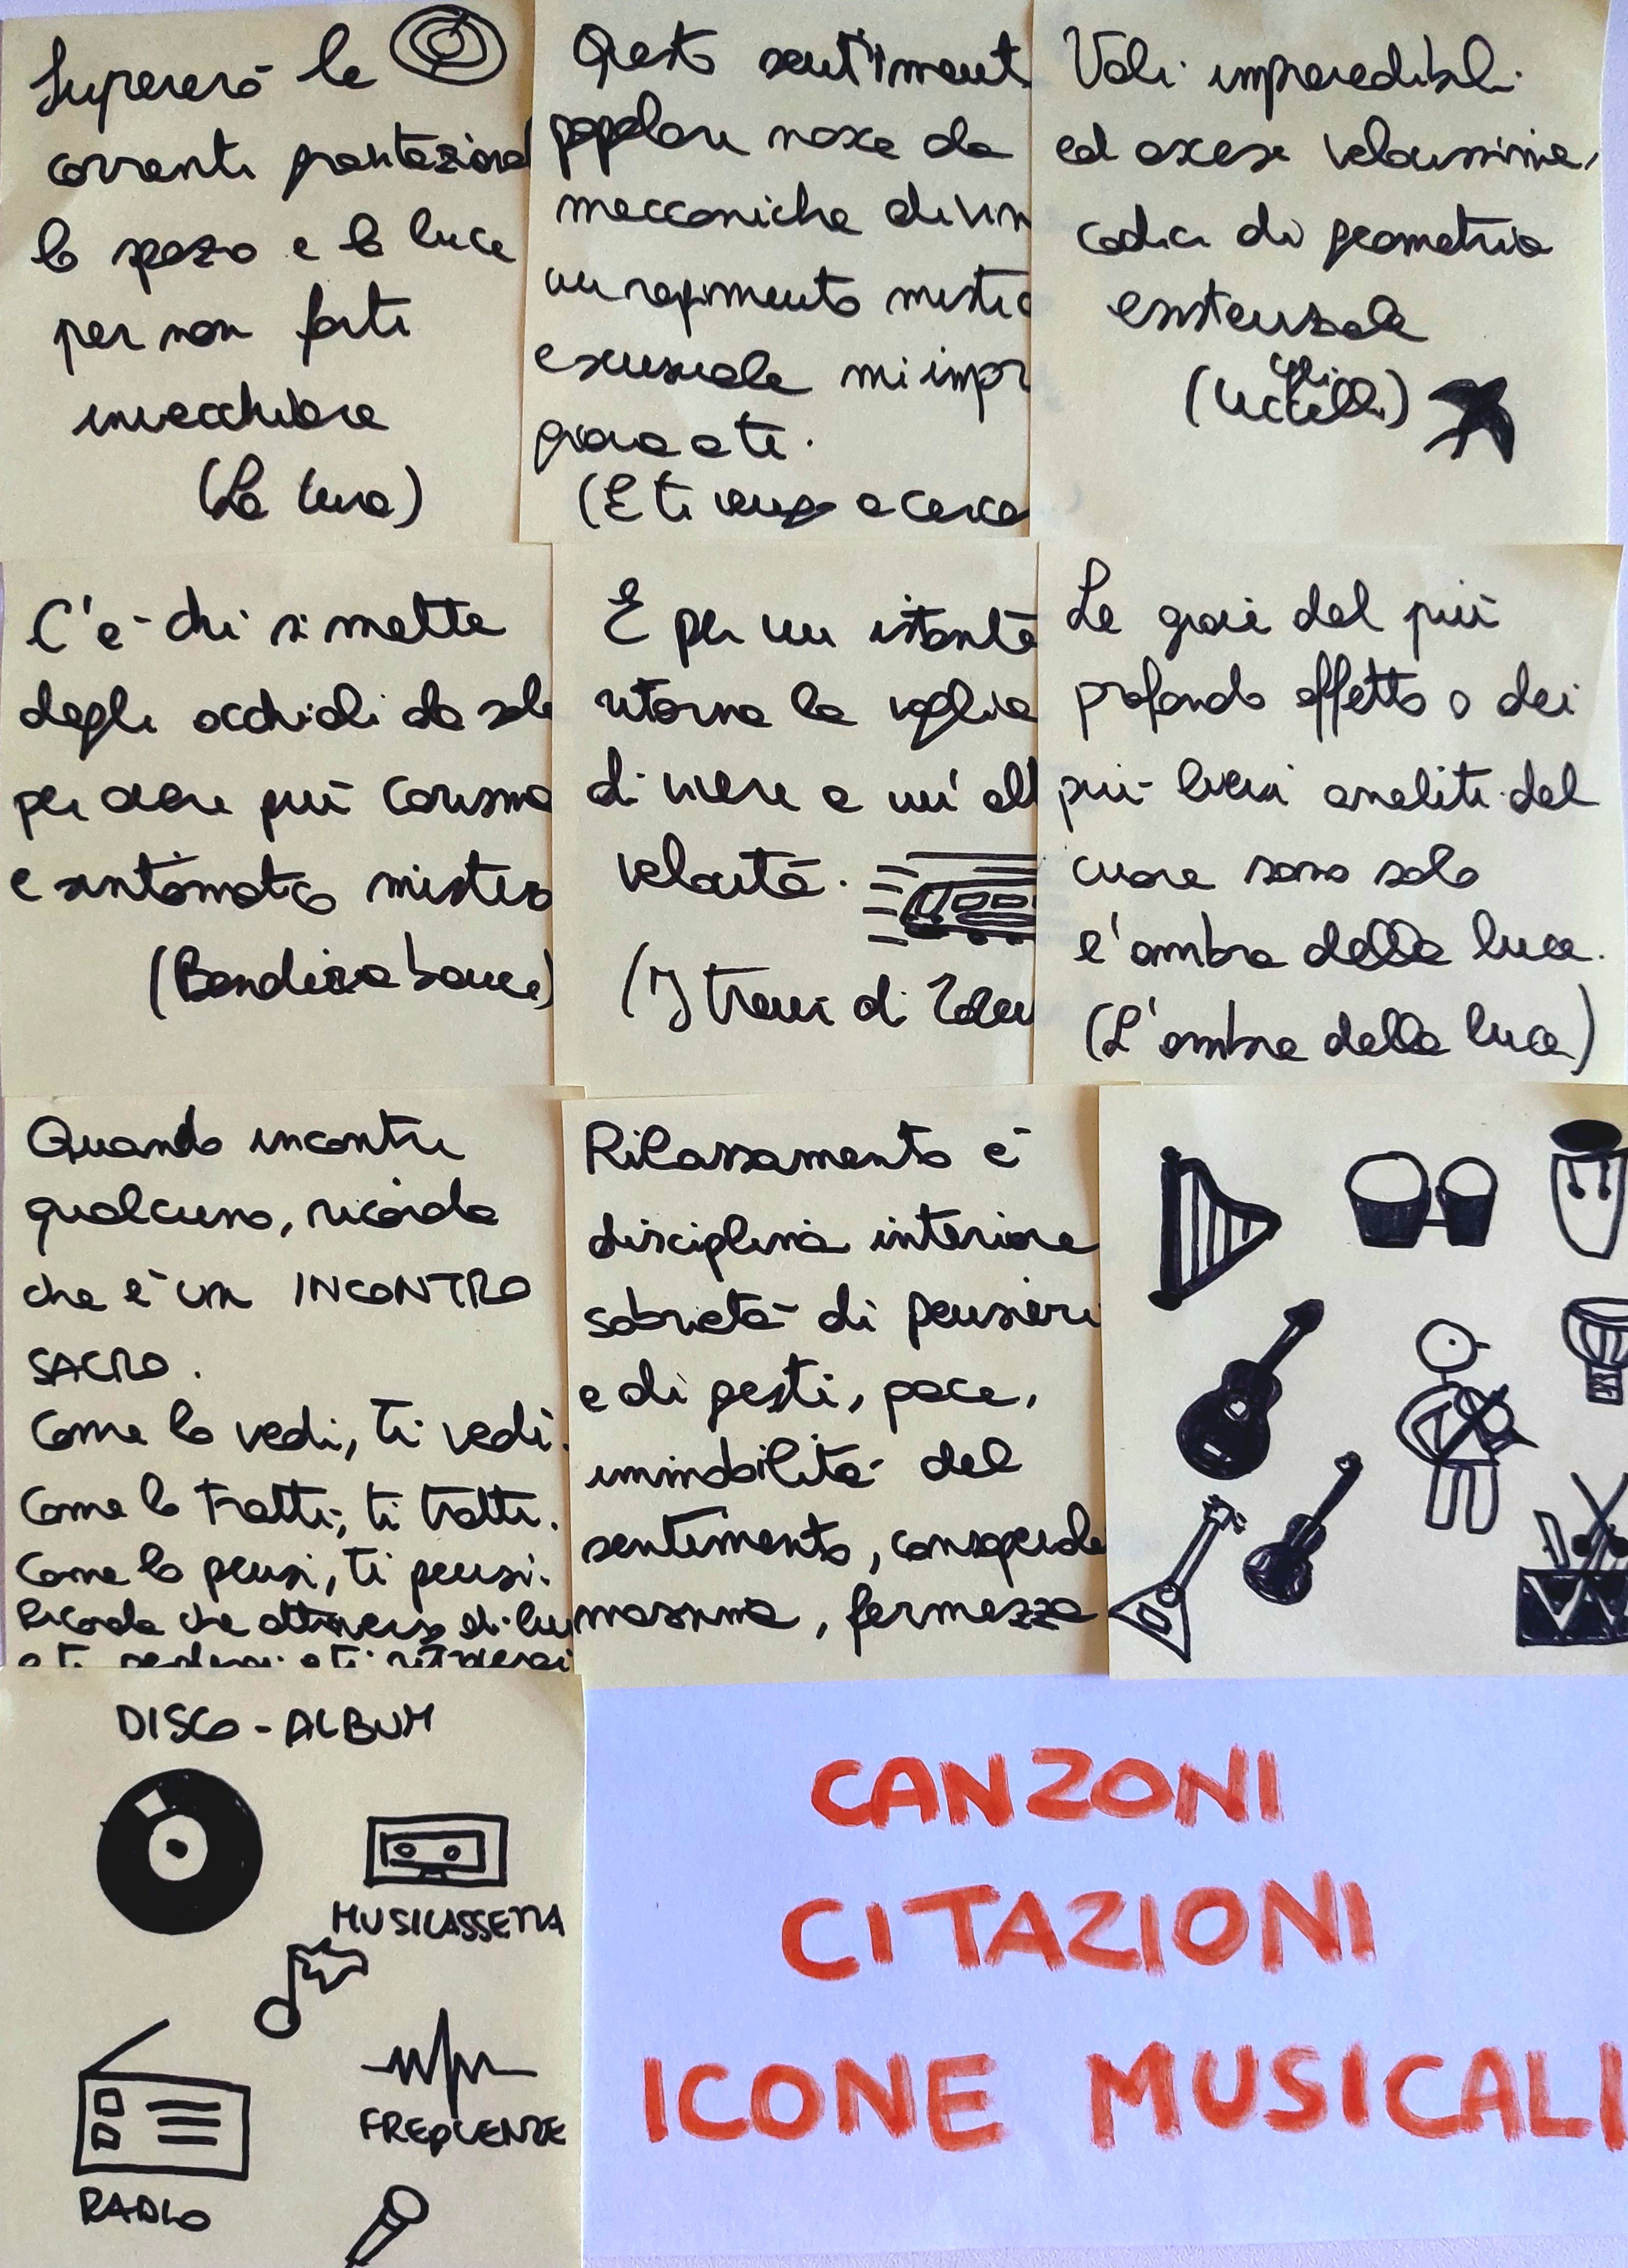 Supererò le
correnti gravitazional
lo spazio e la luce
per non farti
invecchiare
(La cura)
Questo sentiment
popolare nasce da
meccaniche divin
un rapimento mistic
e sensuale mi impr
giona a te.
(E ti vengo a cerca
Voli imprevedibili
ed ascese velocissime,
codici di geometria
esistenziale
(Gli
Uccelli)
C'è chi si mette
degli occhiali da sole
per avere più carisma
e sintomatico mistero
(Bandiera bianca)
E per un istante
ritorna la voglia
di vivere a un'alt
velocità.
(I treni di Tozeu
Le gioie del più
profondo affetto o dei
più lievi aneliti del
cuore sono solo
l'ombra della luce.
(L'ombra della luce)
Quando incontri
qualcuno, ricorda
che è un INCONTRO
SACRO.
Come lo vedi, ti vedi.
Come lo tratti, ti tratti.
Come lo pensi, ti pensi.
Ricorda che attraverso di lui
o ti perderai o ti ritroverai
Rilassamento è
disciplina interiore
sobrietà di pensieri
e di gesti, pace,
immobilità del
sentimento, consapevole
massima, fermezza
DISCO - ALBUM
MUSICASSETTA
FREQUENZE
RADIO
CANZONI
CITAZIONI
ICONE MUSICALI